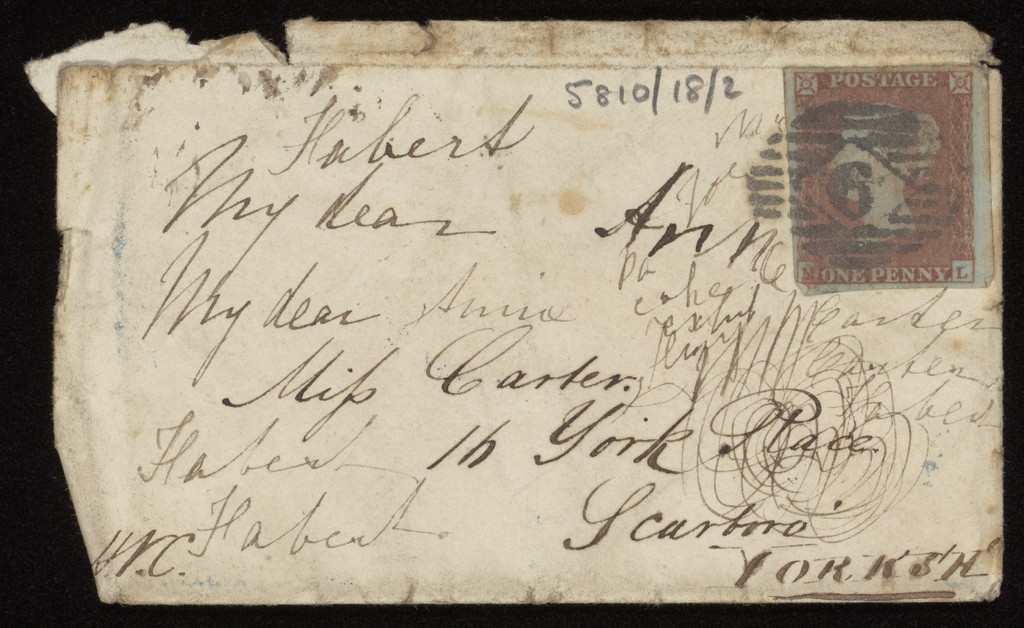 5810/18/2
POSTAGE
6
ONE PENNY L
Habert
My dear Anne
My dear Annie
Carter
Miss Carter.
Carter
Habert 16 York Place
Habert
Scarboro'
YORKSH
W.C.